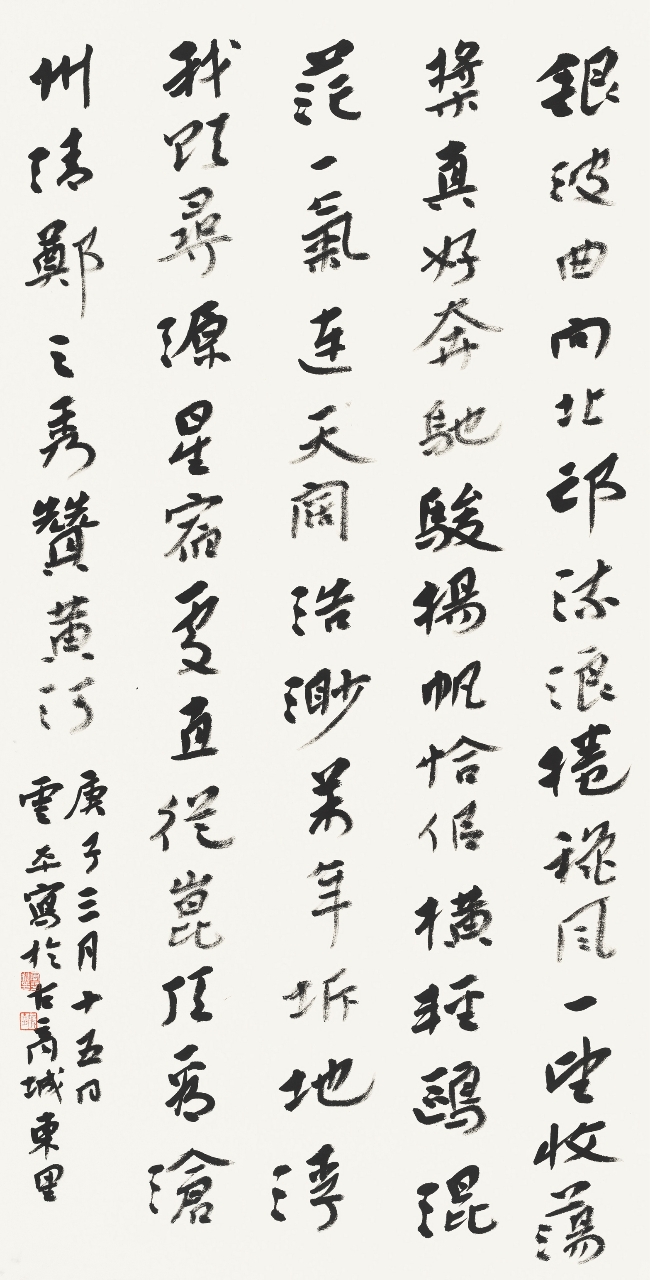 銀波曲向北邙流浪捲穐風一望收蕩
槳真好奔馳駿揚帆恰侶橫輕鷗混
茫一氣連天闊浩渺萬年坼地浮
我願尋源星宿處直從崑頂看滄
州清鄭之秀贊黃河
庚子三月十五日
雲平寫於古商城東里